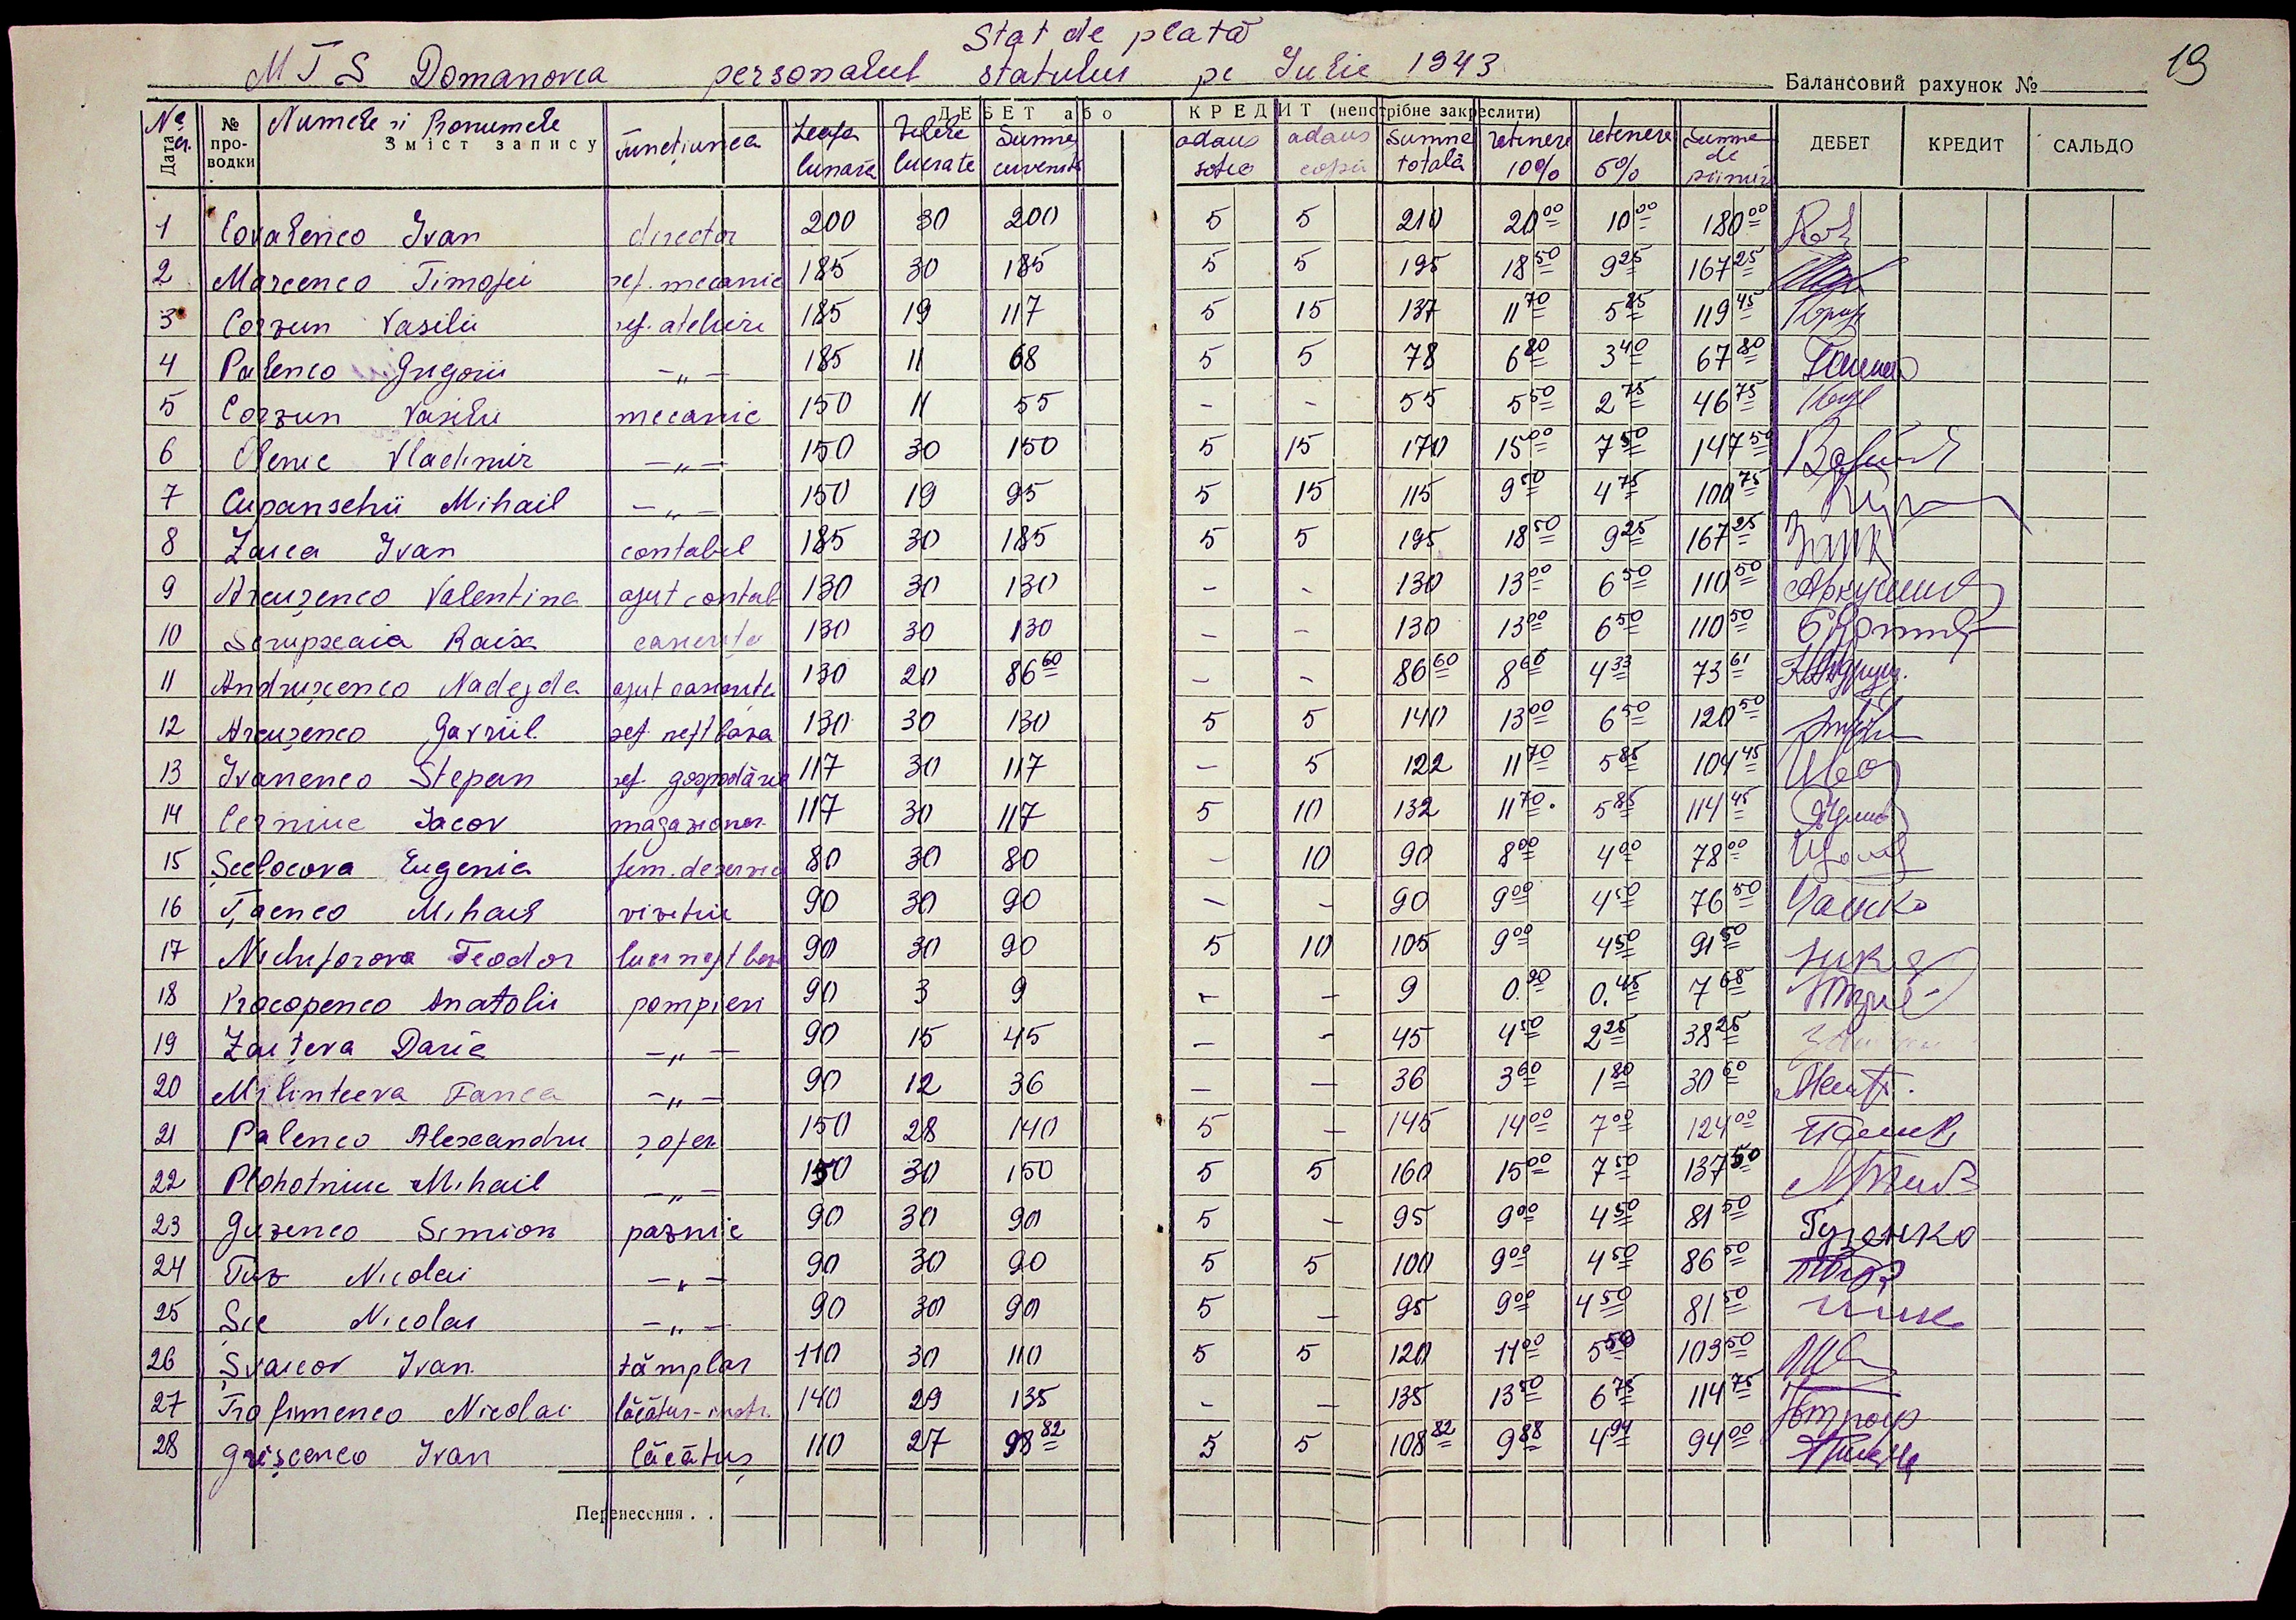 Stat de plată
MTS Domanovca personalul statului pe Iulie 1943
19
Балансовий рахунок №
ДЕБЕТ або КРЕДИТ (непотрібне закреслити)
№ cr. Дата | № проводки | Numele și Pronumele Зміст запису | Funcțiunea | Leafa lunară | Zilele lucrate | Suma cuvenită | adaus soție | adaus copii | Suma totală | retinere 10% | retenere 5% | Suma de primir | ДЕБЕТ | КРЕДИТ | САЛЬДО
1 Covalenco Ivan director 200 30 200 5 5 210 20 00 10 00 180 00
2 Marcenco Timofei șef. mecanic 185 30 185 5 5 195 18 50 9 25 167 25
3 Corzun Vasilii șef. atelieri 185 19 117 5 15 137 11 70 5 85 119 45
4 Palenco Grigorii –„– 185 11 68 5 5 78 6 80 3 40 67 80
5 Corzun Vasilii mecanic 150 11 55 - - 55 5 50 2 75 46 75
6 Olenic Vladimir –„– 150 30 150 5 15 170 15 00 7 50 147 50
7 Cupanschii Mihail –„– 150 19 95 5 15 115 9 50 4 75 100 75
8 Zaica Ivan contabil 185 30 185 5 5 195 18 50 9 25 167 25
9 Arcușenco Valentina ajut contab 130 30 130 - - 130 13 00 6 50 110 50
10 Scrupscaia Raisa casierița 130 30 130 - - 130 13 00 6 50 110 50
11 Andrușenco Nadejda ajut casierița 130 20 86 60 - - 86 60 8 66 4 33 73 61
12 Arcușenco Gavriil șef. neftbaza 130 30 130 5 5 140 13 00 6 50 120 50
13 Ivanenco Stepan șef. gospodărie 117 30 117 - 5 122 11 70 5 85 104 45
14 Cerniuc Iacov magazioner 117 30 117 5 10 132 11 70 5 85 114 45
15 Șcelocova Eugenia fem. deservici 80 30 80 - 10 90 8 00 4 00 78 00
16 Țaenco Mihail vizitiu 90 30 90 - - 90 9 00 4 50 76 50
17 Nichiforova Teodor lucr neft baz 90 30 90 5 10 105 9 00 4 50 91 50
18 Procopenco Anatolii pompieri 90 3 9 - - 9 0.90 0.45 7 65
19 Zaițeva Daria –„– 90 15 45 - - 45 4 50 2 25 38 25
20 Milinteeva Fanea –„– 90 12 36 - - 36 3 60 1 80 30 60
21 Palenco Alexandru șofer 150 28 140 5 - 145 14 00 7 00 124 00
22 Plohotniuc Mihail –„– 150 30 150 5 5 160 15 00 7 50 137 50
23 Guzenco Simion paznic 90 30 90 5 - 95 9 00 4 50 81 50 Гузенко
24 Tuz Nicolai –„– 90 30 90 5 5 100 9 00 4 50 86 50
25 Șce Nicolai –„– 90 30 90 5 - 95 9 00 4 50 81 50
26 Șvaicov Ivan tâmplar 110 30 110 5 5 120 11 00 5 50 103 50
27 Trofimenco Nicolai lăcătuș-instr. 140 29 135 - - 135 13 50 6 75 114 75
28 Grișcenco Ivan lăcătuș 110 27 98 82 5 5 108 82 9 88 4 94 94 00
Перенесення . .